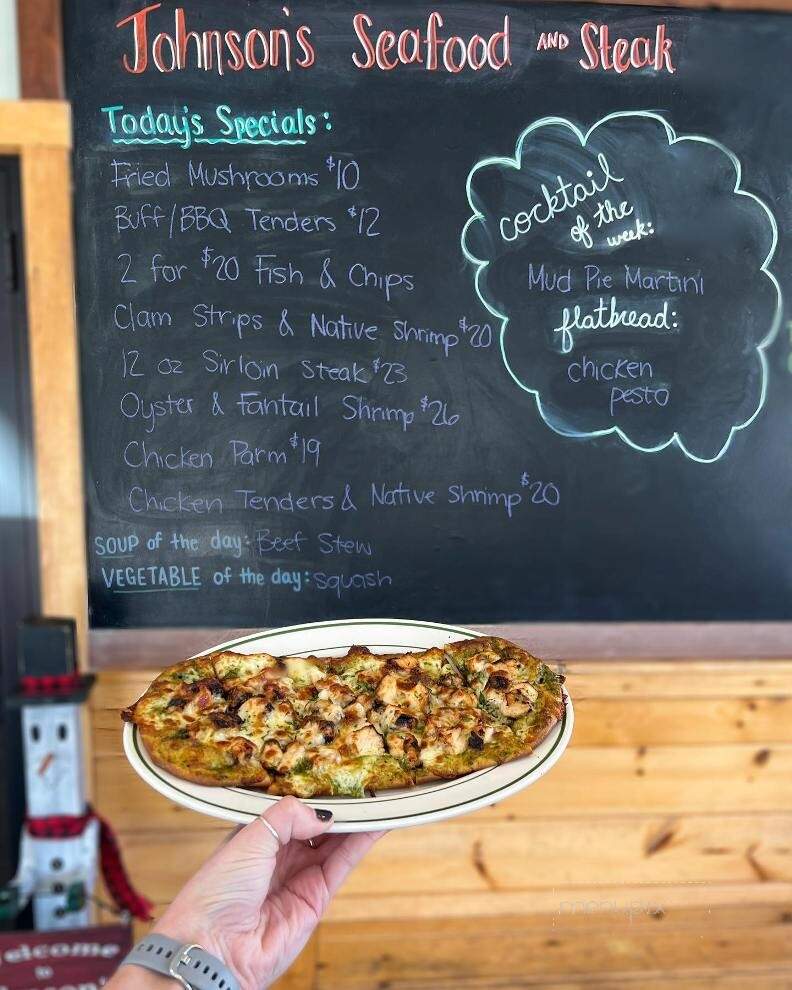 Johnson's Seafood AND Steak
Today's Specials:
Fried Mushrooms $10
Buff/BBQ Tenders $12
2 for $20 Fish & Chips
Clam Strips & Native Shrimp $20
12 oz Sirloin Steak $23
Oyster & Fantail Shrimp $26
Chicken Parm $19
Chicken Tenders & Native Shrimp $20
SOUP of the day: Beef Stew
VEGETABLE of the day: squash
cocktail
of the
week:
Mud Pie Martini
flatbread:
chicken
pesto
menupix
elcome
to